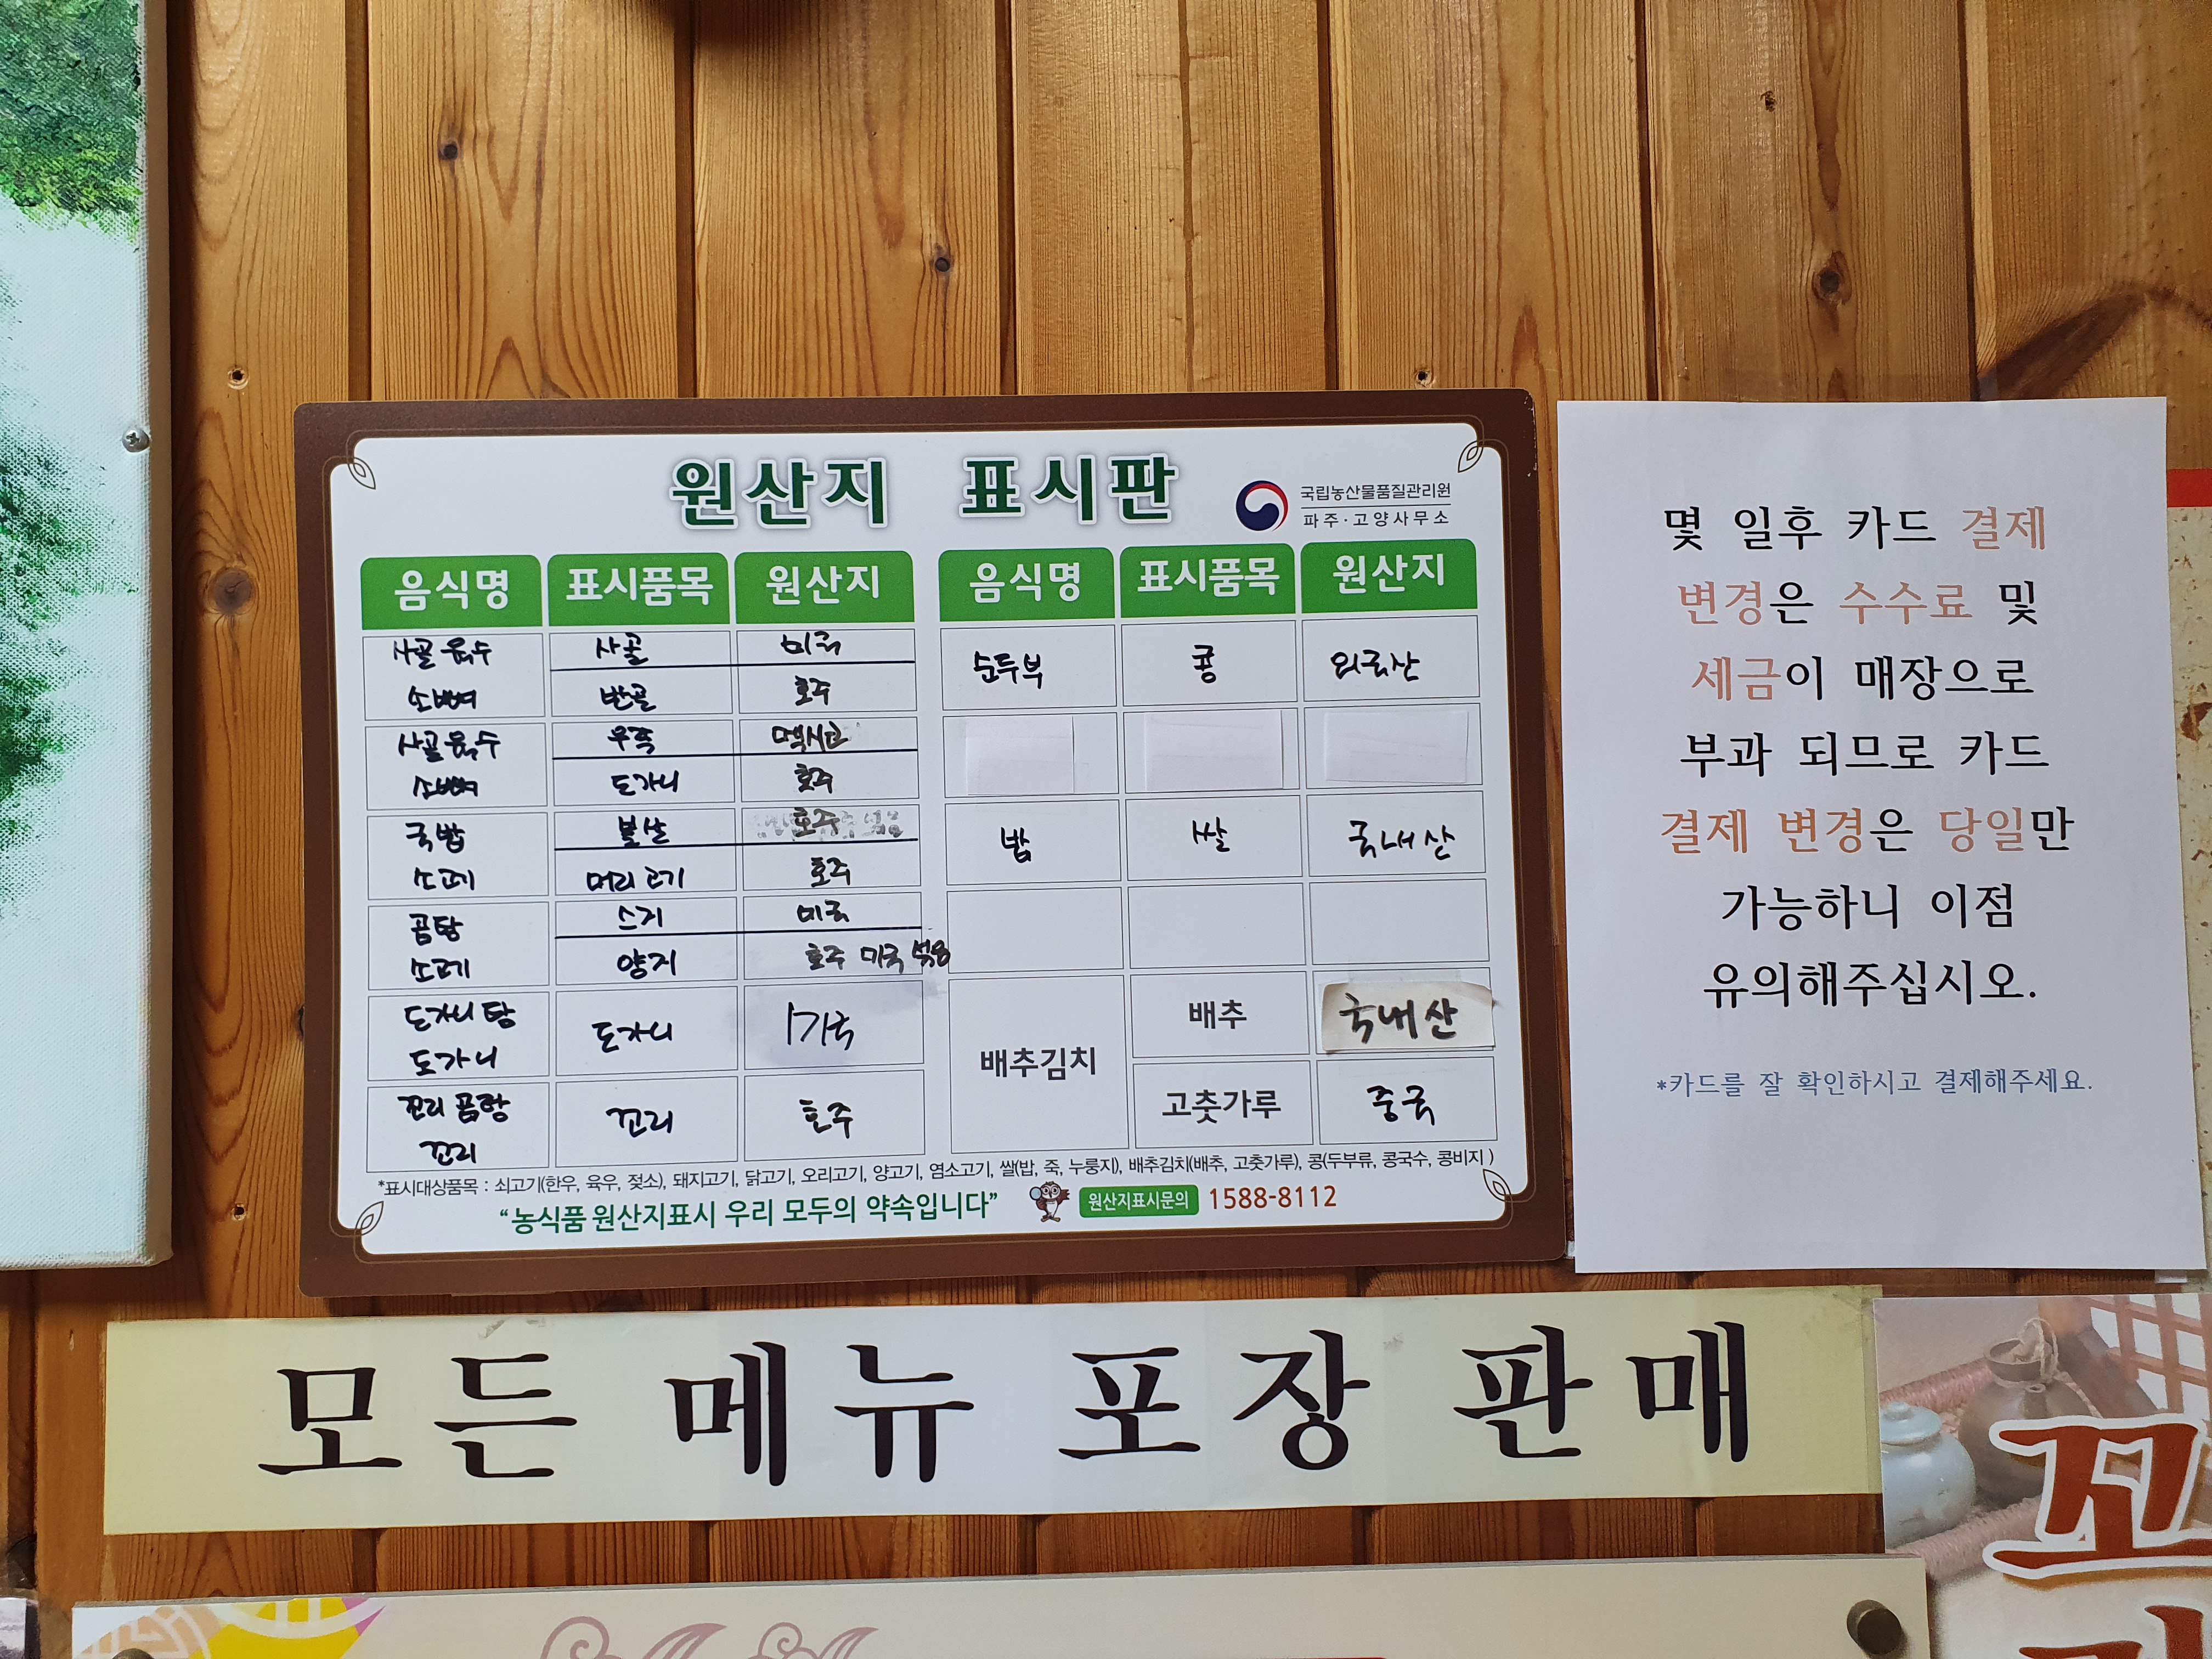 원산지 표시판
국립농산물품질관리원
파주·고양사무소
음식명 표시품목 원산지 음식명 표시품목 원산지
사골육수 사골 미국
소뼈 반골 호주
순두부 콩 외국산
사골육수 우족 멕시코
소뼈 도가니 호주
국밥 볼살 호주
소고기 머리고기 호주
밥 쌀 국내산
곰탕 스지 미국
소고기 양지 호주 미국 섞음
도가니탕 도가니
도가니
배추김치 배추 국내산
고춧가루 중국
꼬리곰탕 꼬리 호주
꼬리
*표시대상품목 : 쇠고기(한우, 육우, 젖소), 돼지고기, 닭고기, 오리고기, 양고기, 염소고기, 쌀(밥, 죽, 누룽지), 배추김치(배추, 고춧가루), 콩(두부류, 콩국수, 콩비지)
“농식품 원산지표시 우리 모두의 약속입니다” 원산지표시문의 1588-8112
몇 일후 카드 결제
변경은 수수료 및
세금이 매장으로
부과 되므로 카드
결제 변경은 당일만
가능하니 이점
유의해주십시오.
*카드를 잘 확인하시고 결제해주세요.
모든 메뉴 포장 판매
꼬